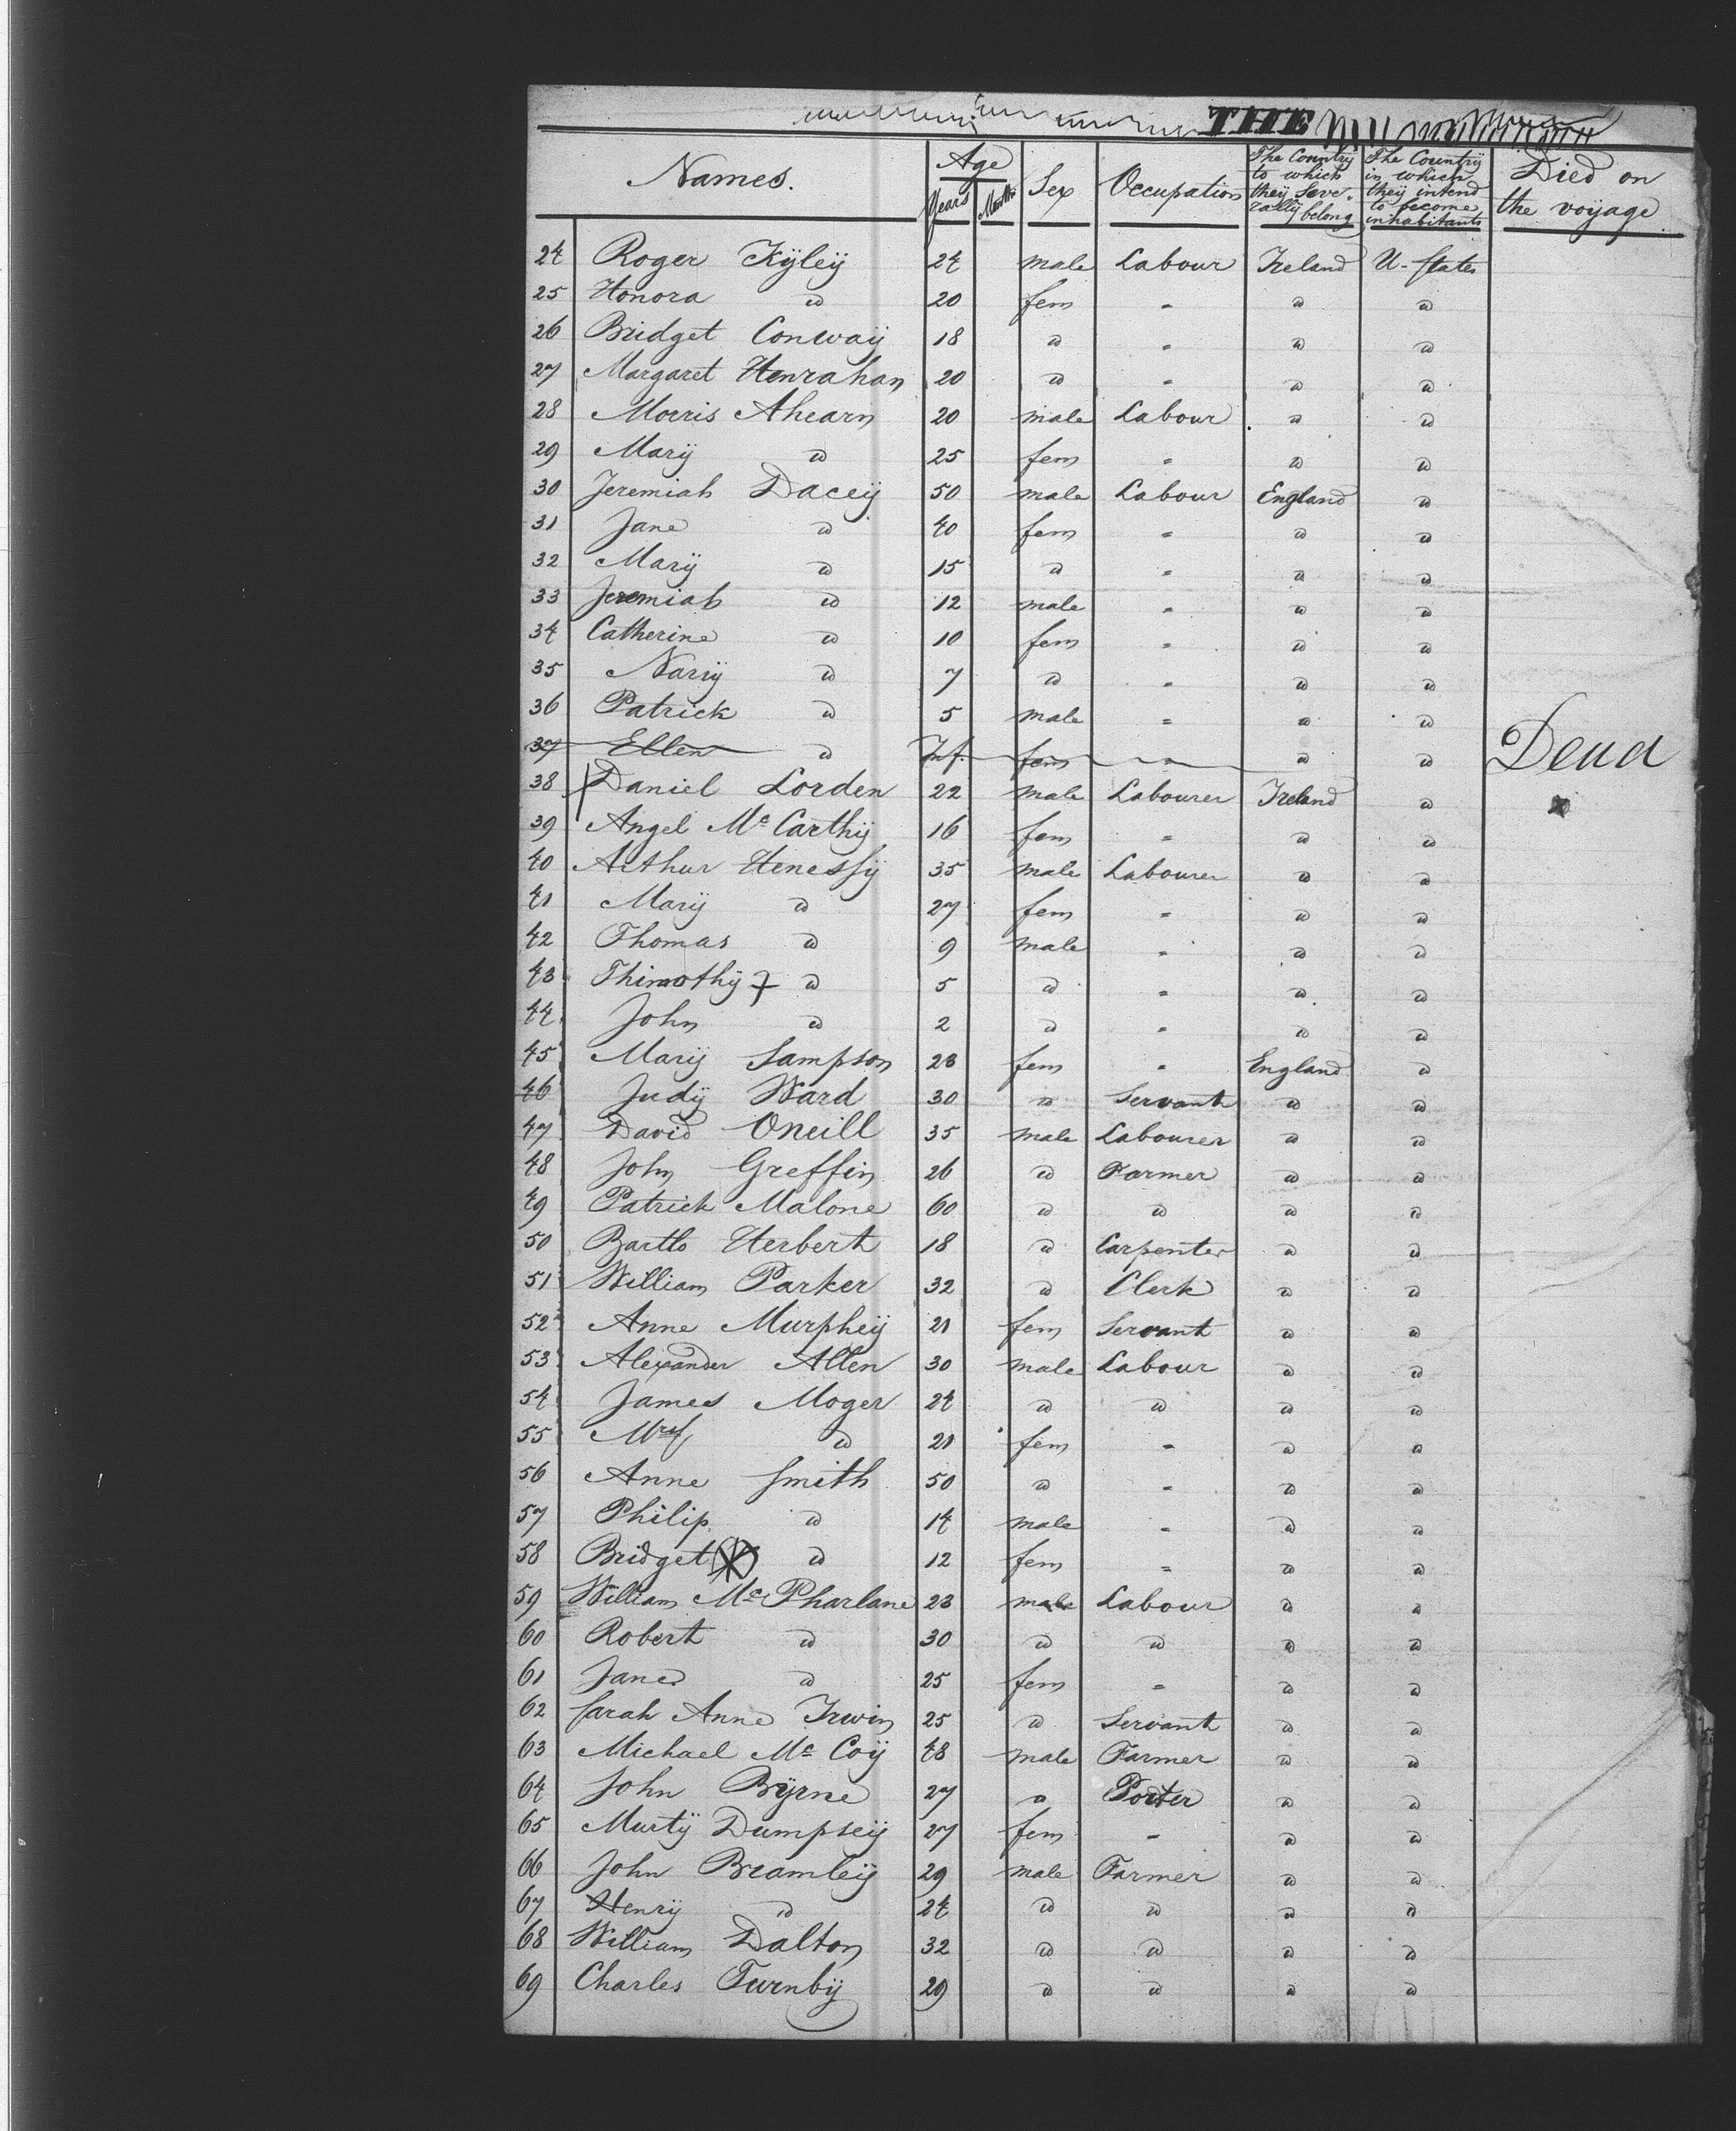 THE
Names. Age Years Months Sex Occupation The Country to which they seve-rally belong The Country in which they intend to become inhabitants Died on the voyage
24 Roger Kÿleÿ 24 male Labour Ireland U-States
25 Honora d 20 fem " d d
26 Bridget Conwaÿ 18 d " d d
27 Margaret Henrahan 20 d " d d
28 Morris Ahearn 20 male Labour d d
29 Marÿ d 25 fem " d d
30 Jeremiah Daceÿ 50 male Labour England d
31 Jane d 40 fem " d d
32 Marÿ d 15 d " d d
33 Jeremiah d 12 male " d d
34 Catherine d 10 fem " d d
35 Narÿ d 7 d " d d
36 Patrick d 5 male " d d
37 Ellen d Inf. fem " d d Dead
38 Daniel Lorden 22 male Labourer Ireland d
39 Angel Mc Carthÿ 16 fem " d d
40 Arthur Henessÿ 35 male Labourer d d
41 Marÿ d 27 fem " d d
42 Thomas d 9 male " d d
43 Thimothÿ d 5 d " d d
44 John d 2 d " d d
45 Marÿ Sampson 28 fem " England d
46 Judÿ Ward 30 d Servant d d
47 David Oneill 35 male Labourer d d
48 John Greffin 26 d Farmer d d
49 Patrick Malone 60 d d d d
50 Bartlo Herbert 18 d Carpenter d d
51 William Parker 32 d Clerk d d
52 Anne Murpheÿ 21 fem Servant d d
53 Alexander Allen 30 male Labour d d
54 James Moger 24 d d d d
55 Mrs d 21 fem " d d
56 Anne Smith 50 d " d d
57 Philip d 14 male " d d
58 Bridget d 12 fem " d d
59 William Mc Pharlane 23 male Labour d d
60 Robert d 30 d d d d
61 Jane d 25 fem " d d
62 Sarah Anne Irwin 25 d Servant d d
63 Michael Mc Coÿ 48 male Farmer d d
64 John Bÿrne 27 d Porter d d
65 Murtÿ Dumpseÿ 27 fem " d d
66 John Bramleÿ 29 male Farmer d d
67 Henrÿ d 24 d d d d
68 William Dalton 32 d d d d
69 Charles Turnbÿ 29 d d d d